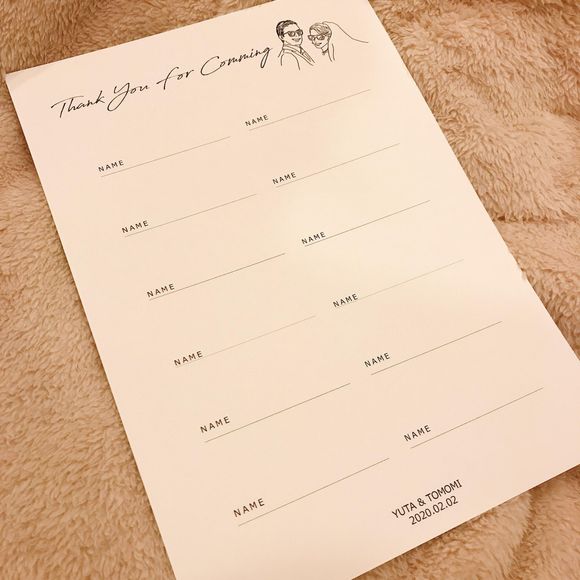 Thank You For Comming
NAME NAME
NAME NAME
NAME NAME
NAME NAME
NAME NAME
NAME NAME
YUTA & TOMOMI
2020.02.02